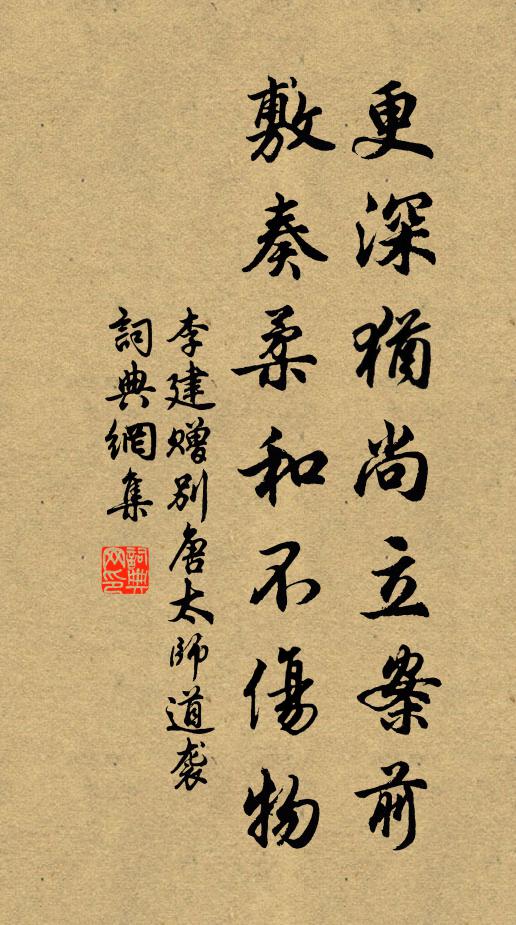 更深猶尚立案前
敷奏柔和不傷物
李建贈別唐太師道袭
詞典網集
詞典網印